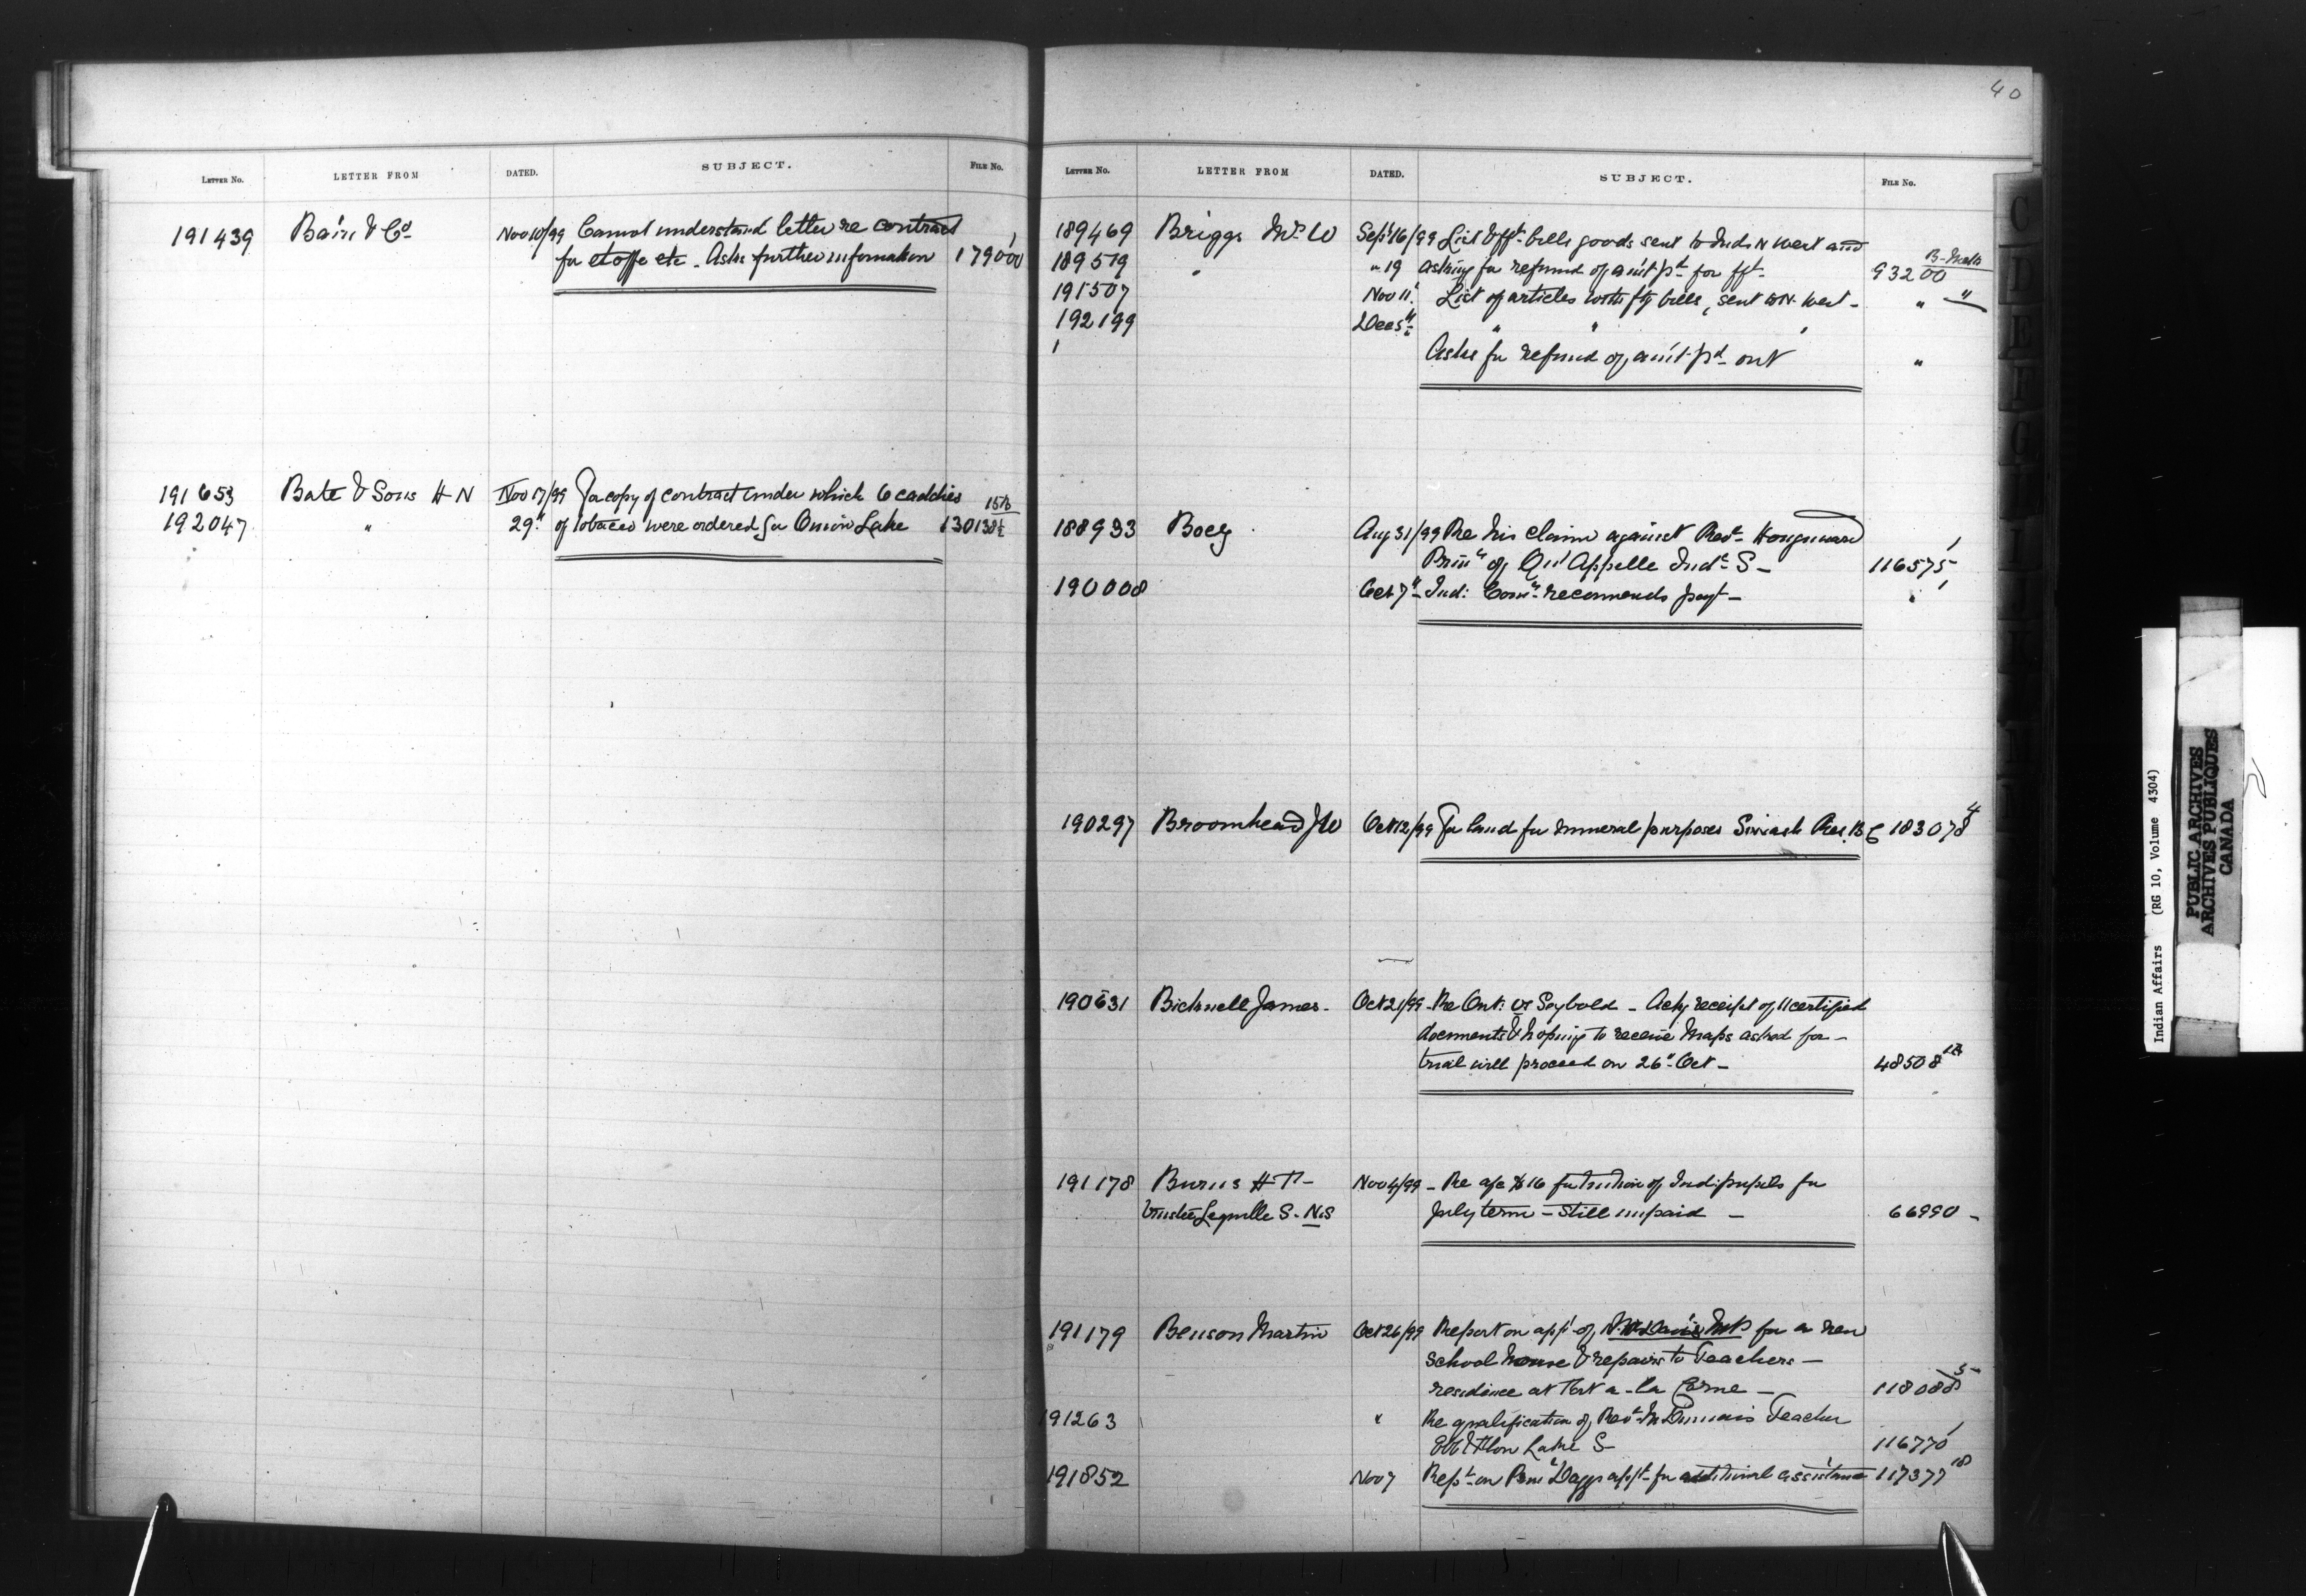 LETTER No. LETTER FROM DATED. SUBJECT. FILE No.
191439 Bain & Co Nov 10/99 Cannot understand letter re contract
for etoffe etc. Asks further information 179000
191653 Bate & Sons H N Nov 17/99 For copy of contract under which 6 caddies
192047 " 29" of tobacco were ordered for Onion Lake 130138
40
LETTER No. LETTER FROM DATED. SUBJECT. FILE No.
189469 Briggs Mr W Sept 16/99 List & fft bills goods sent to Inds N West and
189519 " " 19 asking for refund of am't pd for fft- 93200
191507 Nov 11 List of articles with fgt bills, sent to N. West - " "
192199 Dec 5th " " "
Asks for refund of am't pd out "
188933 Aug 31/99 Re his claim against Revd Hougnard
Prinl of Qu'Appelle Indl S - 116575
190008 Oct 7" Ind: Comr recommends payt - "
190297 Broomhead J W Oct 12/99 For land for mineral purposes Siwash Res. B C 183078
190631 Bicknell James - Oct 21/99 - Re Ont: vs Seybold - Ackg receipt of 11 certified
documents & hoping to receive maps asked for -
trial will proceed on 26" Oct - 48508
191178 Burns H T - Nov 4/99 - Re a/c $16 for tuition of Ind: pupils for
Trustee Lequille S. N.S July term - still unpaid - 66990 -
191179 Benson Martin Oct 26/99 Report on appl of Davis MP for a new
school house & repairs to Teachers -
residence at Fort a - la Corne - 118088 5
191263 " Re qualification of Revd Teacher
Lake S - 116770
191852 Nov 7 Rept on Prinl Daggs applt for additional assistance 117377 18
Indian Affairs (RG 10, Volume 4304)
PUBLIC ARCHIVES
ARCHIVES PUBLIQUES
CANADA